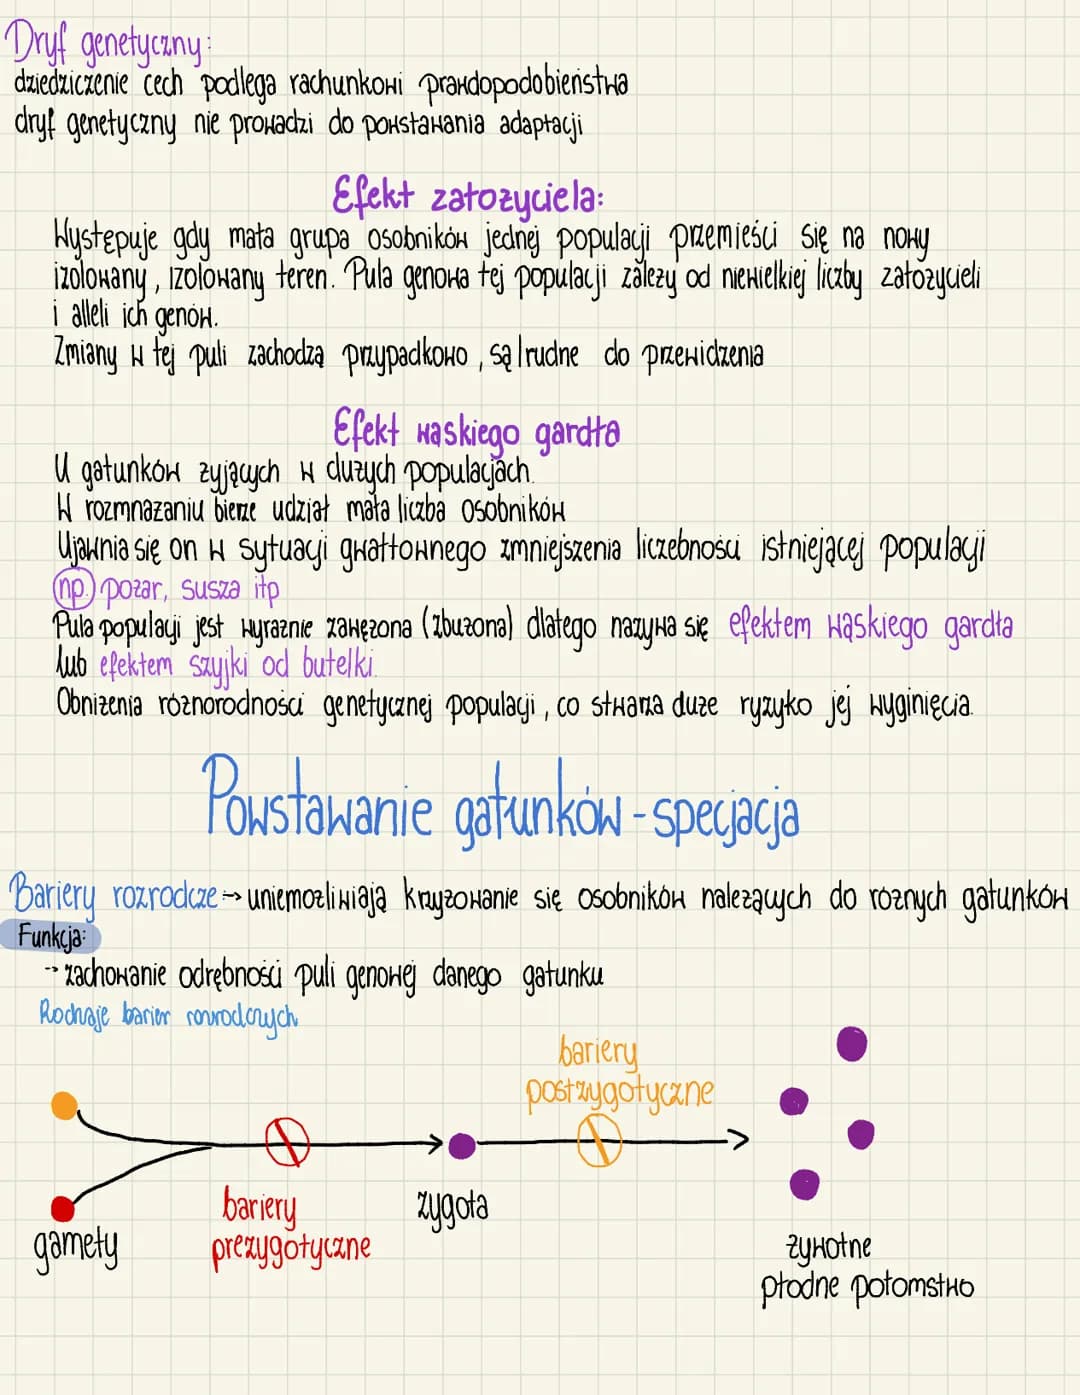 Dryf genetyczny:
dziedziczenie cech podlega rachunkowi prawdopodobieństwa
dryf genetyczny nie prowadzi do powstawania adaptacji
Efekt założyciela:
Występuje gdy mała grupa osobników jednej populacji przemieści się na nowy
izolowany, izolowany teren. Pula genowa tej populacji zależy od niewielkiej liczby założycieli
i alleli ich genów.
Zmiany w tej puli zachodzą przypadkowo, są trudne do przewidzenia
Efekt wąskiego gardła
U gatunków żyjących w dużych populacjach.
W rozmnażaniu bierze udział mała liczba osobników
Ujawnia się on w sytuacji gwałtownego zmniejszenia liczebności istniejącej populacji
np. pożar, susza itp
Pula populacji jest wyraźnie zawężona (zbużona) dlatego nazywa się efektem wąskiego gardła
lub efektem szyjki od butelki.
Obniżenia różnorodności genetycznej populacji, co stwarza duże ryzyko jej wyginięcia.
Powstawanie gatunków - specjacja
Bariery rozrodcze → uniemożliwiają krzyżowanie się osobników należących do różnych gatunków
Funkcja:
→ zachowanie odrębności puli genowej danego gatunku
Rodzaje barier rozrodczych
bariery
postzygotyczne
gamety
bariery
prezygotyczne
zygota
żywotne
płodne potomstwo